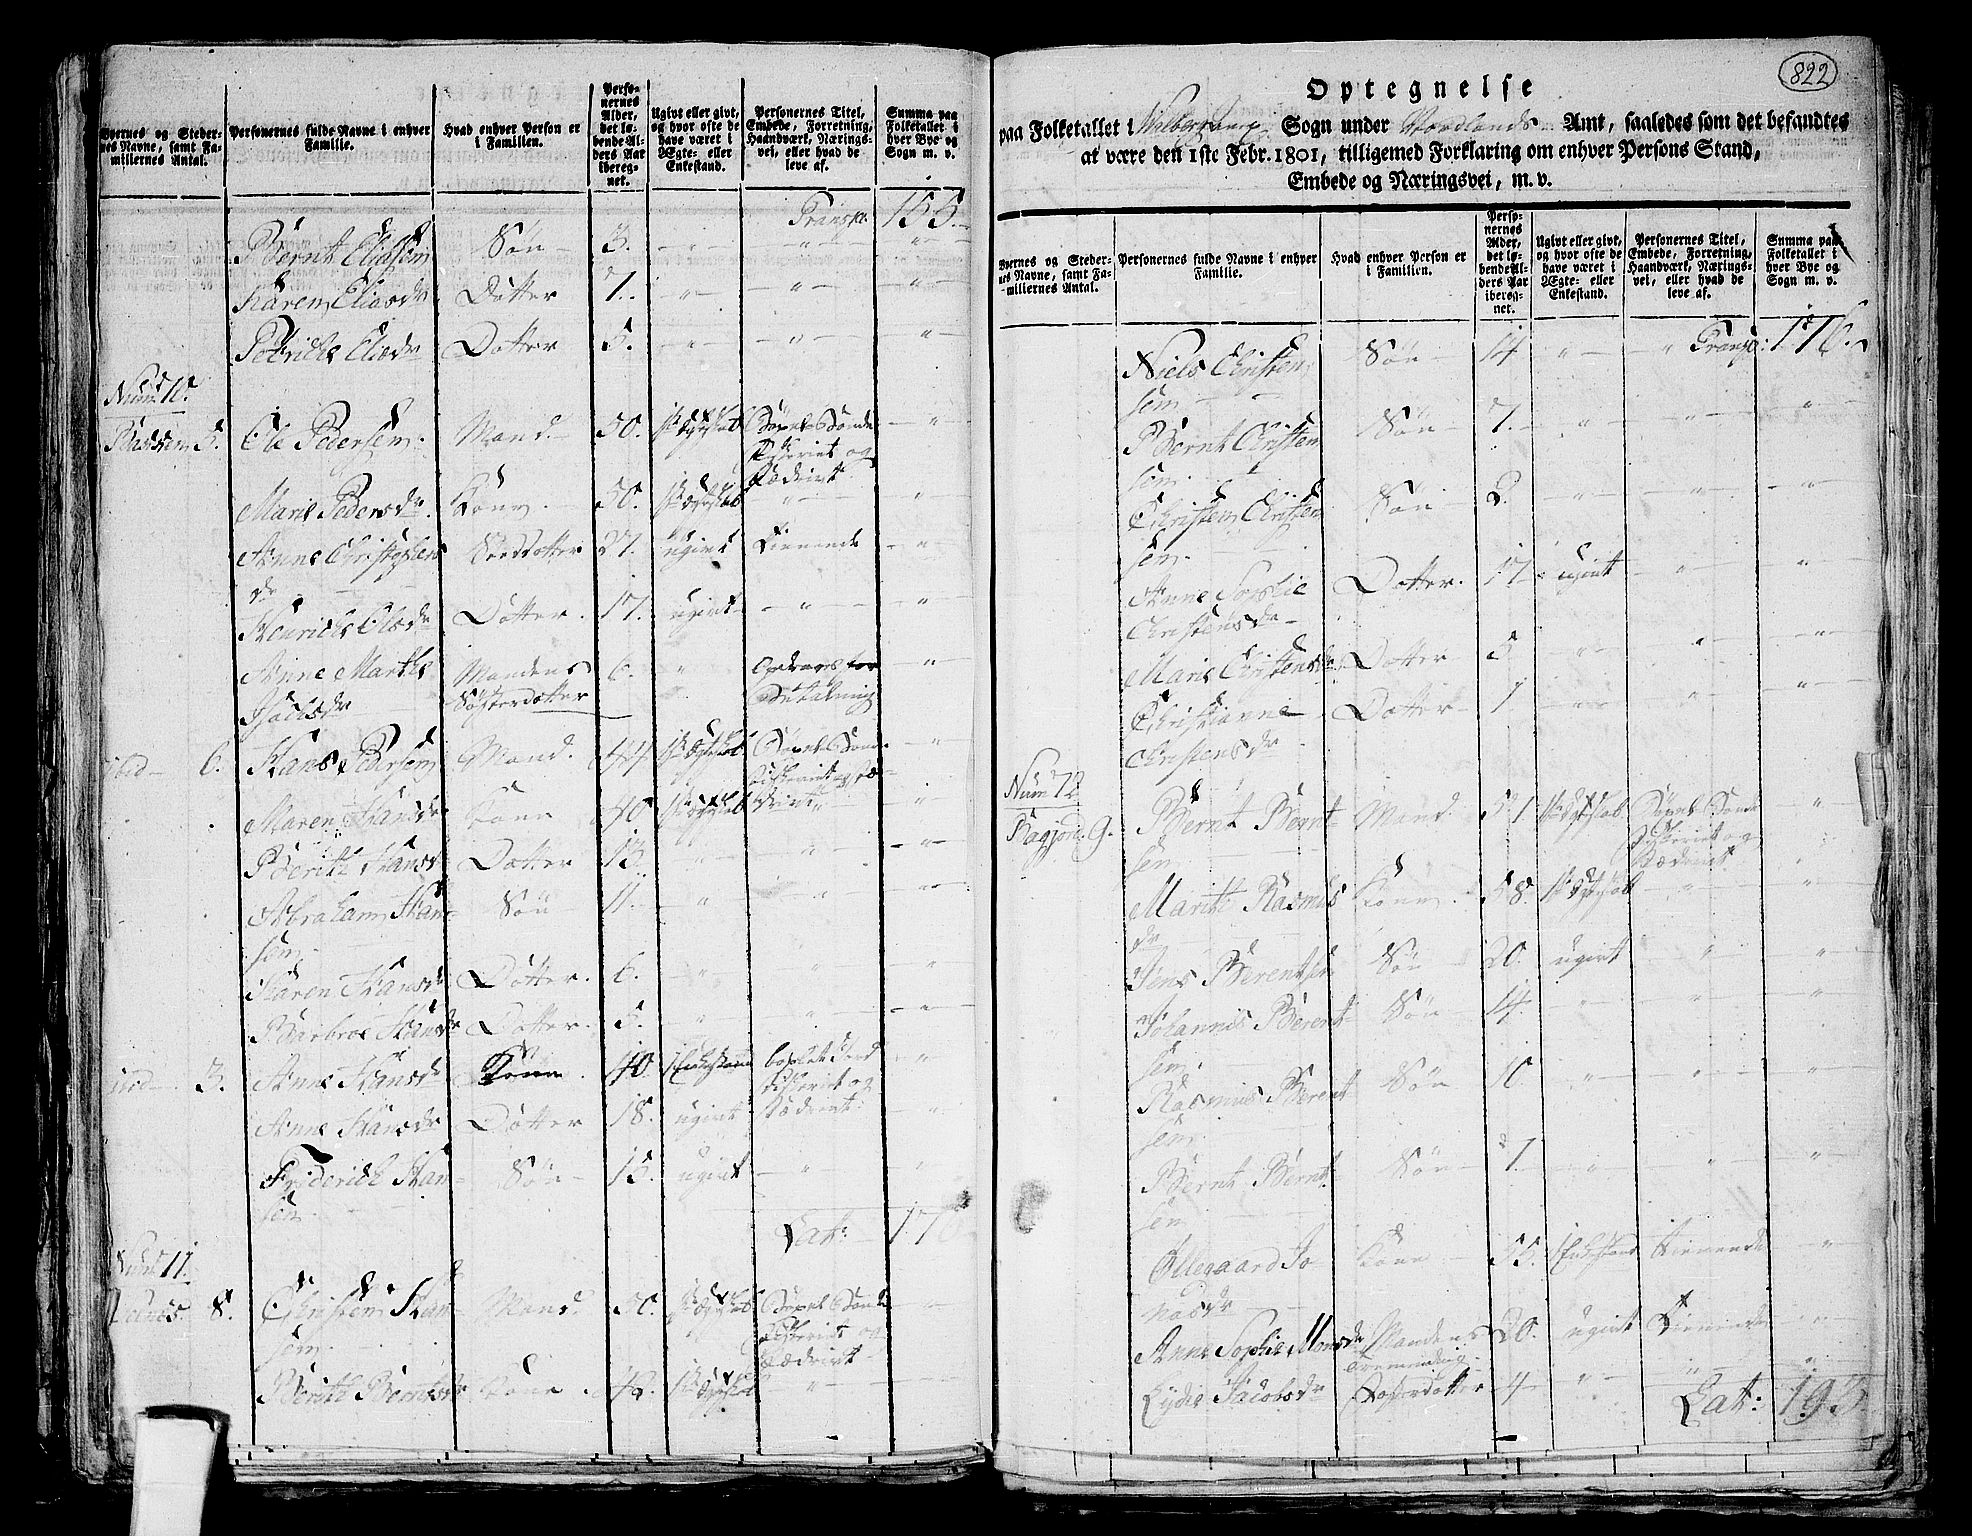 822
Byernes og Steder-
nes Navne, samt Fa-
millernes Antal.
Personernes fulde Navne i enhver
Familie.
Hvad enhver Person er
i Familien.
Perso-
nernes
Alder,
det lø-
bende Al-
ders Aar
iberegnet.
Ugivt eller givt,
og hvor ofte de
have været i
Ægte- eller
Enkestand.
Personernes Titel,
Embede, Forretning,
Haandværk, Nærings-
vei, eller hvad de
leve af.
Summa paa
Folketallet i
hver Bye og
Sogn m. v.
Transp. 155.
Bernt Eliassen Søn 3.
Karen Eliasdr Dotter 7.
Petriche Eliasdr Dotter 5.
Num 10.
5. Ole Pedersen Mand 50. 1ste Ægteskab Bøxel Bonde
Fiskerie og
Jordbrug
Maric Pedersdr. Kone 50. 1ste Ægteskab
Anne Christophers Stifdotter 27. ugivt Tienende
dr
Henriche Olsdr Dotter. 17. ugivt
Anne Marthe Mandens 6. Opdrages for
Isachsdr Søsterdotter Betalning
ibid 6. Hans Pedersen Mand. 44 1ste Ægteskab Bøxel Bonde
Maren Hansdr Kone 40 1ste Ægteskab
Berith Hansdr Dotter 13.
Abraham Han- Søn 11.
sen
Karen Hansdr Dotter. 6.
Barbroe Hansdr Dotter. 5.
ibid 3. Anne Hansdr Kone 40. 1 Enkestand
Anne Hansdr Dotter 18. ugivt
Friderich Han- Søn 15. ugivt
sen
Lat: 176
Num 11.
8. Christen Han- Mand. 50. 1ste Ægteskab Bøxel Bonde
sen. Fiskerie og
Berith Berntsdr Kone. 42. 1ste Ægteskab
Optegnelse
paa Folketallet i Sogn under Nordlands Amt, saaledes som det befandtes
at være den 1ste Febr. 1801, tilligemed Forklaring om enhver Persons Stand,
Embede og Næringsvei, m. v.
Byernes og Steder-
nes Navne, samt Fa-
millernes Antal.
Personernes fulde Navne i enhver
Familie.
Hvad enhver Person er
i Familien.
Perso-
nernes
Alder,
det lø-
bende Al-
ders Aar
iberegnet.
Ugivt eller givt,
og hvor ofte de
have været i
Ægte- eller
Enkestand.
Personernes Titel,
Embede, Forretning,
Haandværk, Nærings-
vei, eller hvad de
leve af.
Summa paa
Folketallet i
hver Bye og
Sogn m. v.
Transp: 176.
Niels Christen Søn 14
sen
Bernt Christen Søn 7.
sen.
Christen Christen Søn 2.
sen.
Anne Sophie Dotter. 17 ugivt
Christensdr
Maric Christensdr Dotter 5
Christianne Dotter 1
Christensdr
Num 12
9. Bernt Bernt- Mand 51 1ste Ægteskab. Bøxel Bonde
sen Fiskerie og
Maritt Rasmus Kone 58. 1ste Ægteskab
dr
Jens Berentsen Søn 20. ugivt
Johannis Berent Søn 14.
sen.
Rasmus Berent Søn 10
sen
Bernt Bernt Søn 7.
sen
Ollegaard Jo Kone 55. 1 Enkestand Tienende
nasdr
Anne Sophie Monsdr Mandens 20. ugivt Tienende
Lydie Jacobsdr Dotter 4
Lat: 193